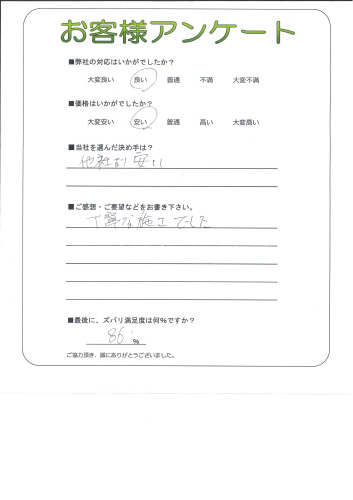 お客様アンケート
■弊社の対応はいかがでしたか？
大変良い 良い 普通 不満 大変不満
■価格はいかがでしたか？
大変安い 安い 普通 高い 大変高い
■当社を選んだ決め手は？
他社より安い
■ご感想・ご要望などをお書き下さい。
丁寧な施工でした
■最後に、ズバリ満足度は何%ですか？
86 %
ご協力頂き、誠にありがとうございました。